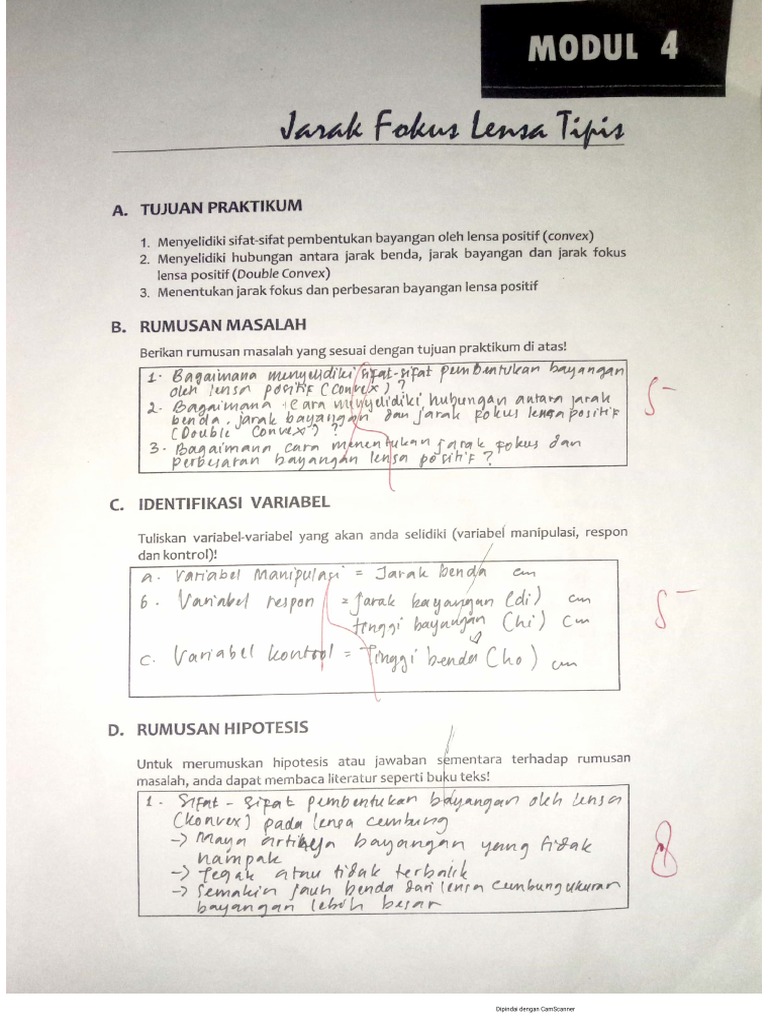 MODUL 4
Jarak Fokus Lensa Tipis
A. TUJUAN PRAKTIKUM
1. Menyelidiki sifat-sifat pembentukan bayangan oleh lensa positif (convex)
2. Menyelidiki hubungan antara jarak benda, jarak bayangan dan jarak fokus
lensa positif (Double Convex)
3. Menentukan jarak fokus dan perbesaran bayangan lensa positif
B. RUMUSAN MASALAH
Berikan rumusan masalah yang sesuai dengan tujuan praktikum di atas!
1. Bagaimana menyelidiki sifat-sifat pembentukan bayangan
oleh lensa positif (Convex) ?
2. Bagaimana cara menyelidiki hubungan antara jarak
benda, jarak bayangan dan jarak fokus lensa positif
(Double Convex) ?
3. Bagaimana cara menentukan jarak fokus dan
perbesaran bayangan lensa positif ?
5-
C. IDENTIFIKASI VARIABEL
Tuliskan variabel-variabel yang akan anda selidiki (variabel manipulasi, respon
dan kontrol)!
a. Variabel Manipulasi = Jarak benda cm
b. Variabel respon = jarak bayangan (di) cm
tinggi bayangan (hi) cm
c. Variabel kontrol = Tinggi benda (ho) cm
5-
D. RUMUSAN HIPOTESIS
Untuk merumuskan hipotesis atau jawaban sementara terhadap rumusan
masalah, anda dapat membaca literatur seperti buku teks!
1. Sifat-Sifat pembentukan bayangan oleh lensa
(konvex) pada lensa cembung
-> Maya artinya bayangan yang tidak
nampak
-> Tegak atau tidak terbalik
-> Semakin jauh benda dari lensa cembung ukuran
bayangan lebih besar
8
Dipindai dengan CamScanner